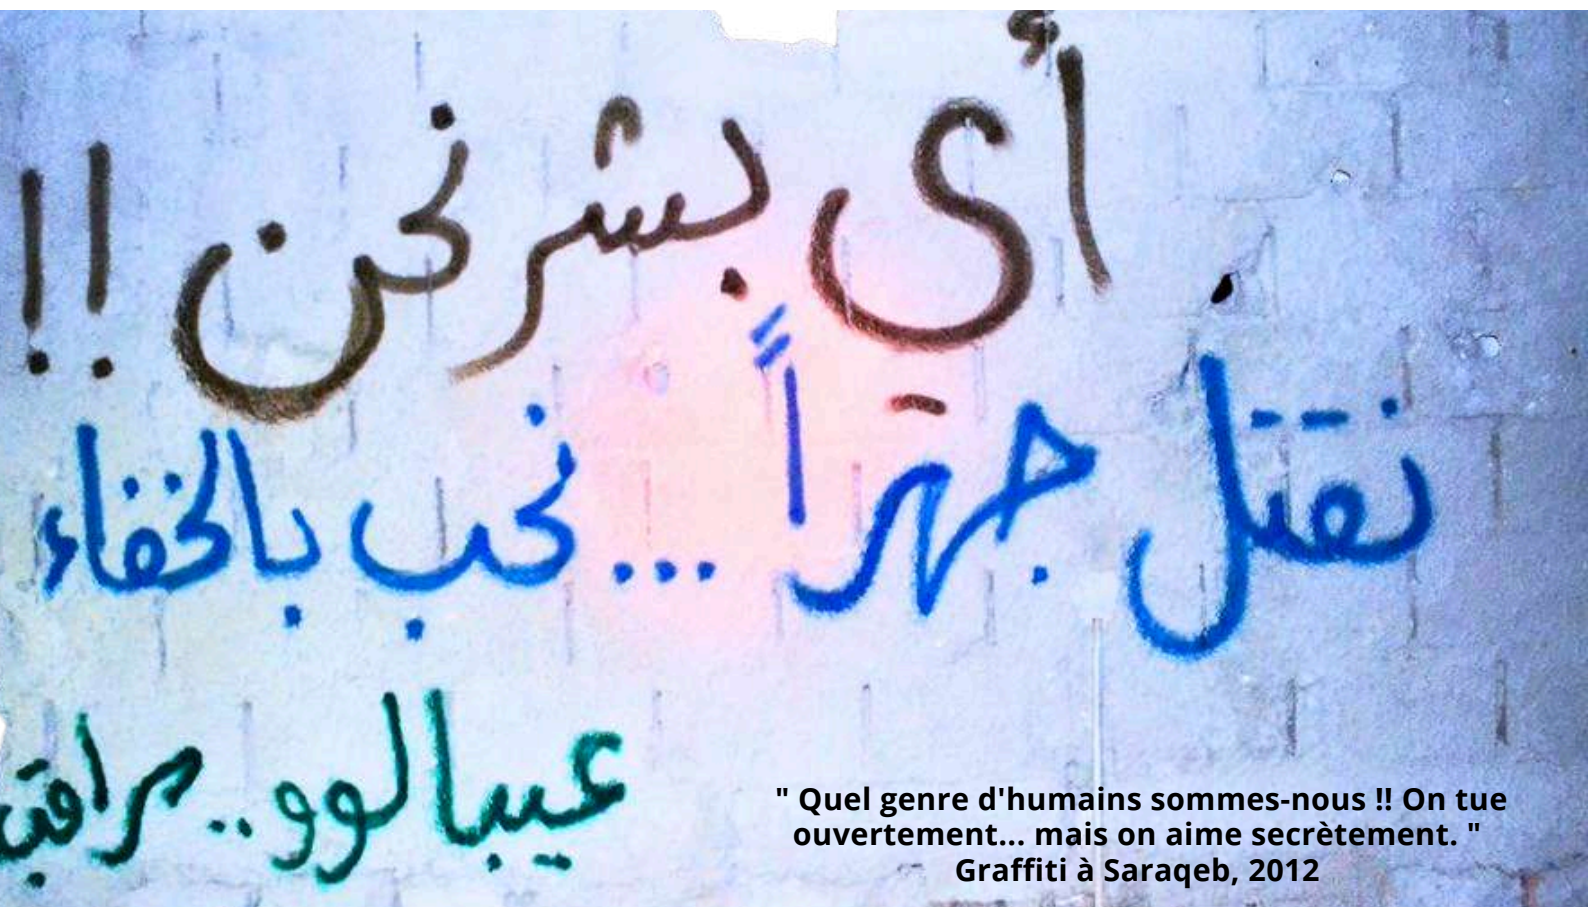 أي بشر نحن !!
نقتل جهراً ... نحب بالخفاء
عيبالوو .. مراقب
" Quel genre d'humains sommes-nous !! On tue
ouvertement... mais on aime secrètement. "
Graffiti à Saraqeb, 2012